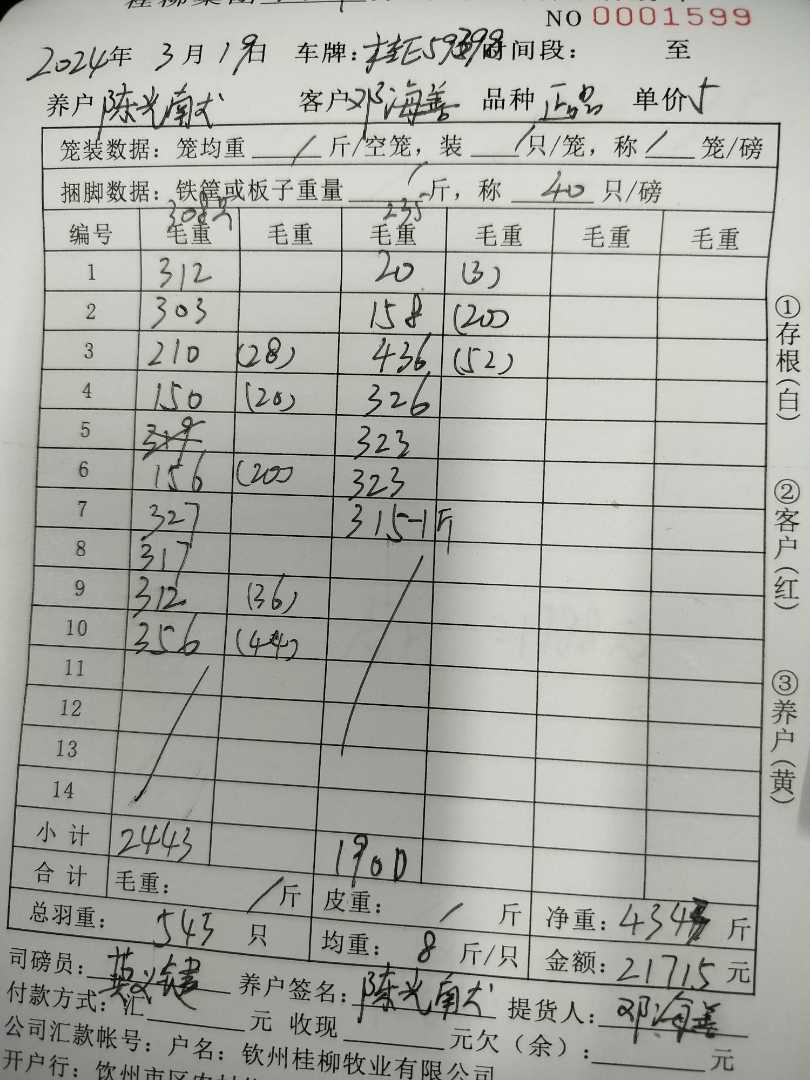 NO 0001599
2024年 3月19日 车牌:桂E59399 时间段: 至
养户 陈光南 客户 邓海善 品种 正品 单价 5
笼装数据: 笼均重 / 斤/空笼, 装 / 只/笼, 称 / 笼/磅
捆脚数据: 铁筐或板子重量 / 斤, 称 40 只/磅
308只 235
编号 毛重 毛重 毛重 毛重 毛重 毛重
1 312 20 (3)
2 303 158 (20)
3 210 (28) 436 (52)
4 150 (20) 326
5 323
6 156 (20) 323
7 327 315-1斤
8 317
9 312 (36)
10 356 (44)
11
12
13
14
小计 2443 1900
合计 毛重: / 斤 皮重: / 斤 净重: 4343 斤
总羽重: 543 只 均重: 8 斤/只 金额: 21715 元
司磅员: 养户签名: 陈光南 提货人: 邓海善
付款方式: 汇 元 收现 元欠(余): 元
公司汇款帐号: 户名: 钦州桂柳牧业有限公司
开户行: 钦州市区农村
①存根(白)
②客户(红)
③养户(黄)